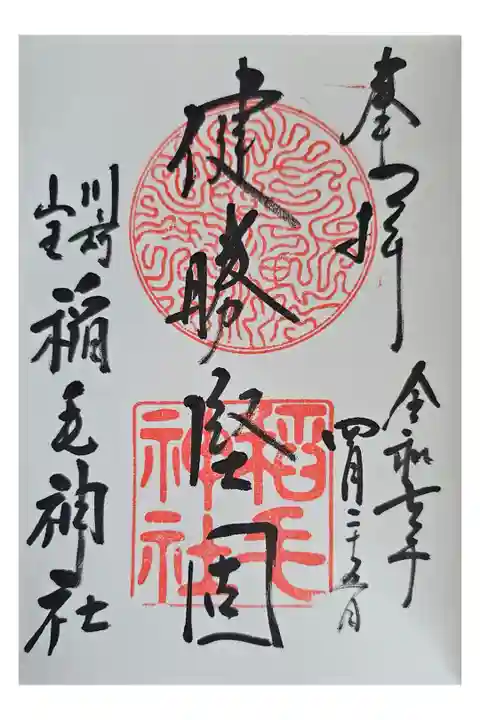 奉拝
令和年
四月二十五日
健勝堅固
稲毛
神社
川崎
山王
稲毛神社